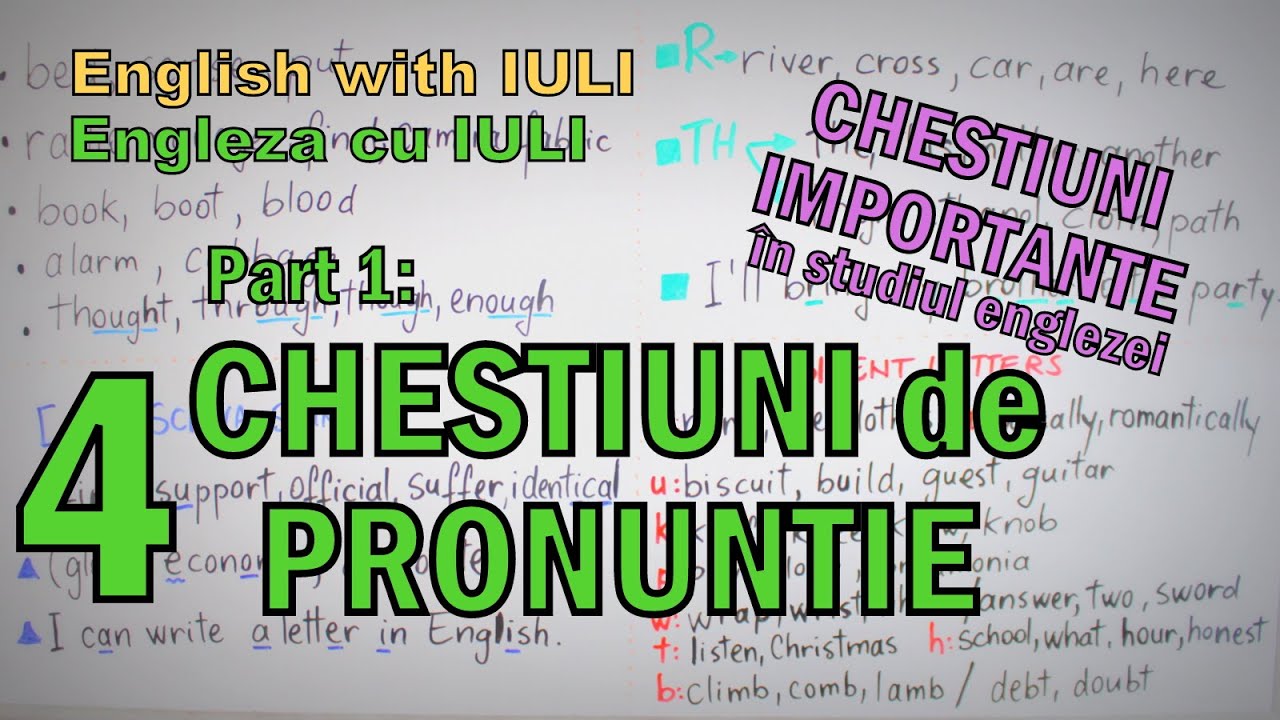 English with IULI
Engleza cu IULI
Part 1:
4 CHESTIUNI de
PRONUNTIE
CHESTIUNI
IMPORTANTE
în studiul englezei
book, boot, blood
alarm,
thought, through, though, enough
support, official, suffer, identical
I can write a letter in English.
R → river, cross, car, are, here
TH another
cloth, path
I'll party
LETTERS
romantically
u: biscuit, build, guest, guitar
knob
answer, two, sword
t: listen, Christmas h: school, what, hour, honest
b: climb, comb, lamb / debt, doubt